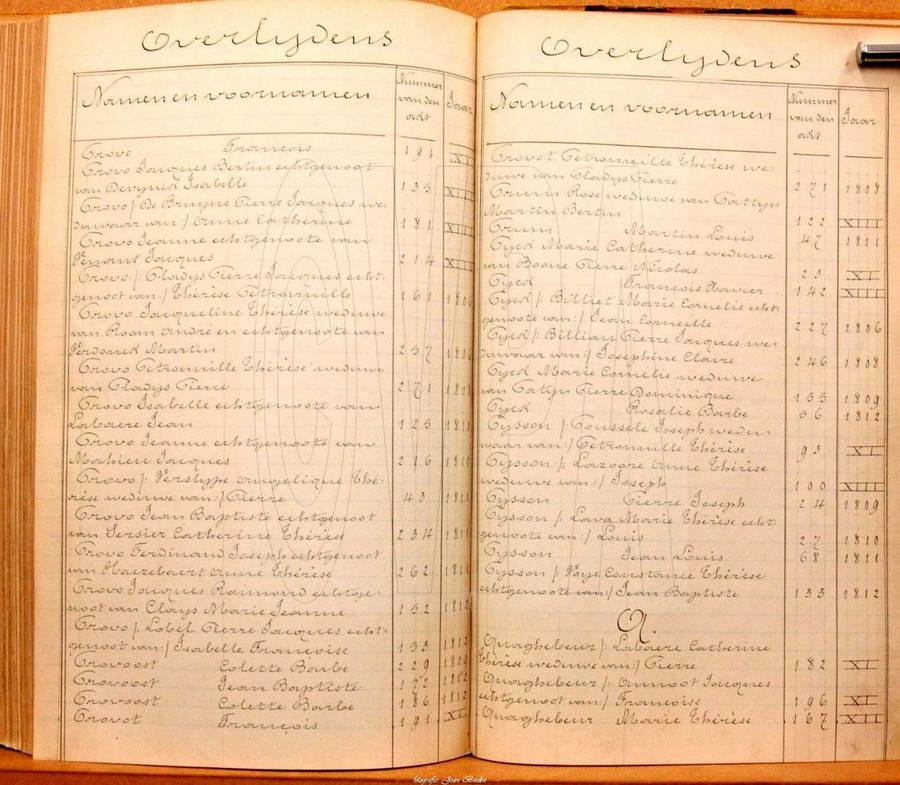 Overlijdens
Namen en voornamen
Nummer van den acht
Jaar
Provo François 191 XI
Provo Jacques Bertin echtgenoot
van Devynck Isabelle 135 XII
Provo /: De Bruyne Pierre Jacques we-
duwaar van :/ Anne Catherine 181 XII
Provo Jeanne echtgenoote van
Penant Jacques 214 XIII
Provo /: Gladys Pierre Jacques echt-
genoot van :/ Thérèse Petronille 161 1806
Provo Jacqueline Thérèse weduwe
van Room André en echtgenoote van
Verdonck Martin 257
Provo Petronille Thérèse weduwe
van Gladys Pierre 271 1808
Provo Isabelle echtgenoote van
Labaere Jean 125
Provo Jeanne echtgenoote van
Mahieu Jacques 216
Provo /: Verslype Angelique Thé-
rèse weduwe van :/ Pierre 43
Provo Jean Baptiste echtgenoot
van Persier Catherine Thérèse 234 1811
Provo Ferdinand Joseph echtgenoot
van Haezebaert Anne Thérèse 262 1811
Provo Jacques Raimond echtge-
noot van Clays Marie Jeanne 152 1812
Provo /: Lobel Pierre Jacques echt-
genoot van :/ Isabelle Françoise 133 1812
Provoost Colette Barbe 229 1809
Provoost Jean Baptiste 172 1812
Provoost Colette Barbe 186 1812
Provot François 191 XI
Overlijdens
Namen en voornamen
Nummer van den acht
Jaar
Provot Petronille Thérèse we-
duwe van Gladys Pierre 271 1808
Pruun Rose weduwe van Pattyn
Martin Bertin 122 XII
Pruun Martin Louis 47 1811
Pyck Marie Catherine weduwe
van Boone Pierre Nicolas 23 XI
Pyck François Xavier 142 XIII
Pyck /: Billiet Marie Cornélie echt-
genoote van :/ Jean Corneille 227 1806
Pyck /: Billiau Pierre Jacques we-
duwaar van :/ Josephine Claire 246 1808
Pyck Marie Cornélie weduwe
van Patyn Pierre Dominique 155 1809
Pyck Rosalie Barbe 56 1812
Pysson /: Goussele Joseph wedu-
waar van :/ Petronille Thérèse 93 XI
Pysson /: Lazoore Anne Thérèse
weduwe van :/ Joseph 100 XIII
Pysson Pierre Joseph 24 1809
Pysson /: Lava Marie Thérèse echt-
genoote van :/ Louis 27 1810
Pysson Jean Louis 68 1811
Pysson /: Foye Constance Thérèse
echtgenoote van :/ Jean Baptiste 133 1812
Q.
Quaghebeur /: Labaere Catherine
Thérèse weduwe van :/ Pierre 182 XI
Quaghebeur /: Annoot Jacques
echtgenoot van :/ Françoise 196 XI
Quaghebeur Marie Thérèse 167 XII
fotografie Joan Bardin